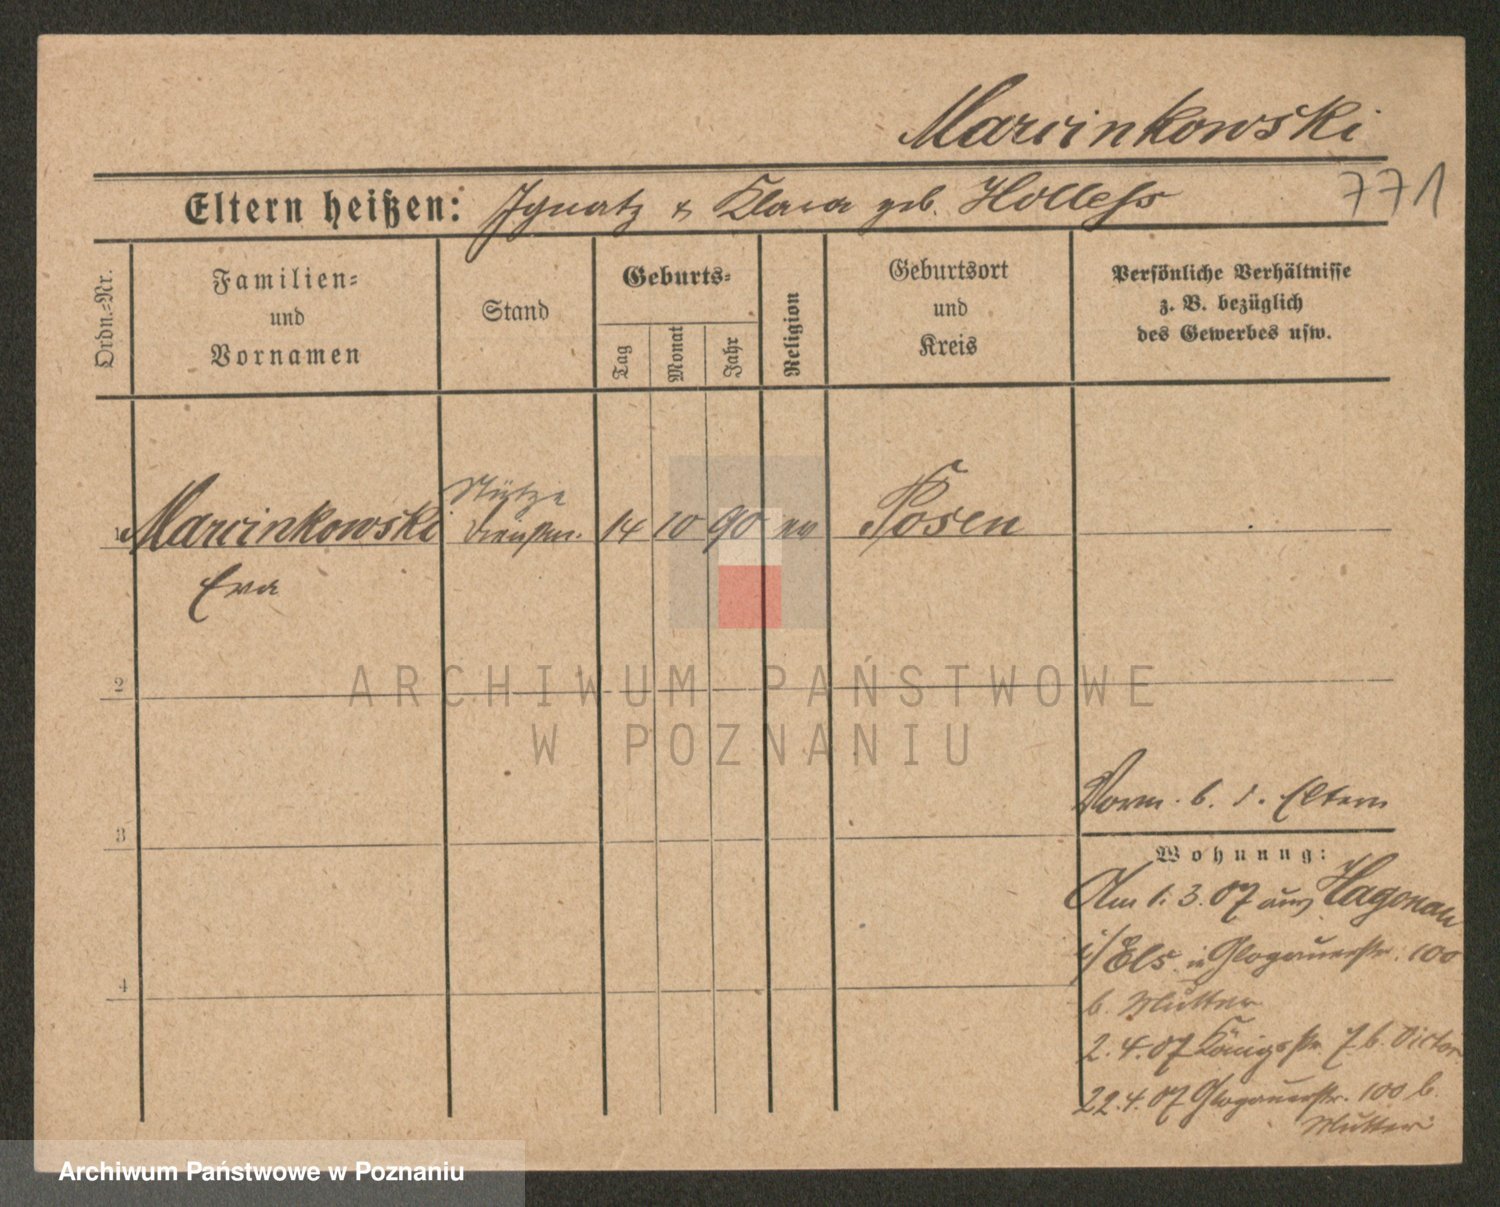 Marcinkowski
771
Eltern heißen: Ignatz & Klara geb. Hölless
Ordn.-Nr.
Familien-
und
Vornamen
Stand
Geburts-
Tag
Monat
Jahr
Religion
Geburtsort
und
Kreis
Persönliche Verhältnisse
z. B. bezüglich
des Gewerbes usw.
Stütze
1 Marcinkowski 14 10 90 Posen
Eva
2
ARCHIWUM PAŃSTWOWE
W POZNANIU
Vorm. b. d. Eltern
3
Wohnung:
Am 1. 3. 07 aus Hagenau
i/Els. in Glogauerstr. 100
4
b. Mutter
2. 4. 07 Königsstr. 7 b. Victor
22. 4. 07 Glogauerstr. 100 b.
Mutter
Archiwum Państwowe w Poznaniu